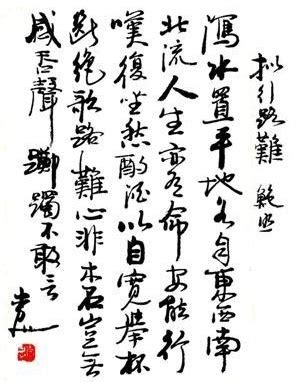 拟行路難 鮑照
瀉水置平地各自東西南
北流人生亦有命安能行
嘆復坐愁酌酒以自寬舉杯
断絶歌路難心非木石豈無
感吞聲躑躅不敢言